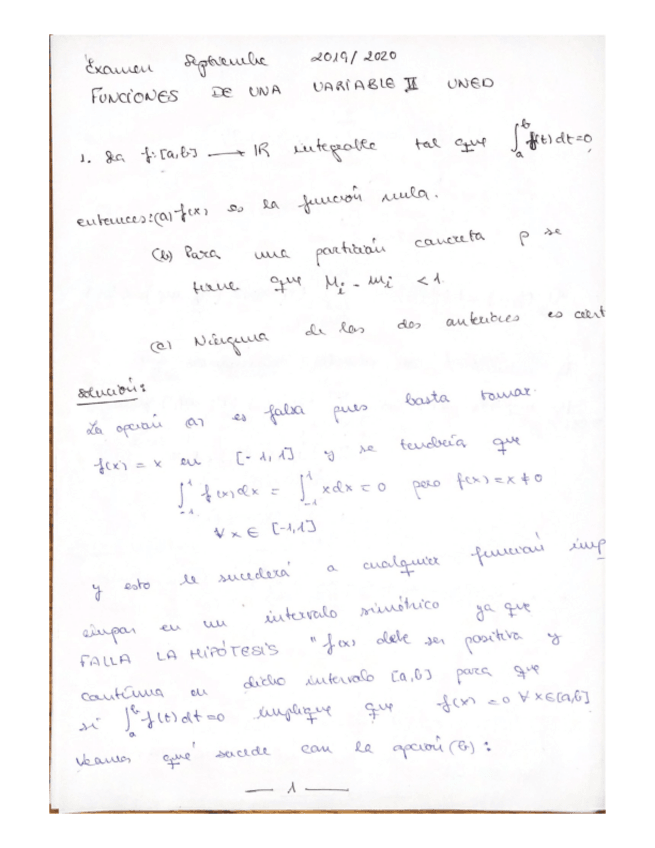 Examen Septiembre 2019/2020
FUNCIONES DE UNA VARIABLE II UNED
1. Sea f:[a,b] → IR integrable tal que ∫_a^b f(t)dt=0,
entonces: (a) f(x) es la función nula.
(b) Para una partición concreta p se
tiene que M_i - m_i < 1
(c) Ninguna de las dos anteriores es ciert
solución:
La opción (a) es falsa pues basta tomar
f(x) = x en [-1,1] y se tendría que
∫_{-1}^1 f(x)dx = ∫_{-1}^1 xdx = 0 pero f(x) = x ≠ 0
∀x ∈ [-1,1]
y esto le sucederá a cualquier función imp
impar en un intervalo simétrico ya que
FALLA LA HIPÓTESIS "f(x) debe ser positiva y
continua en dicho intervalo [a,b] para que
si ∫_a^b f(t)dt=0 implique que f(x) = 0 ∀x∈[a,b]
Veamos qué sucede con la opción (b):
— 1 —